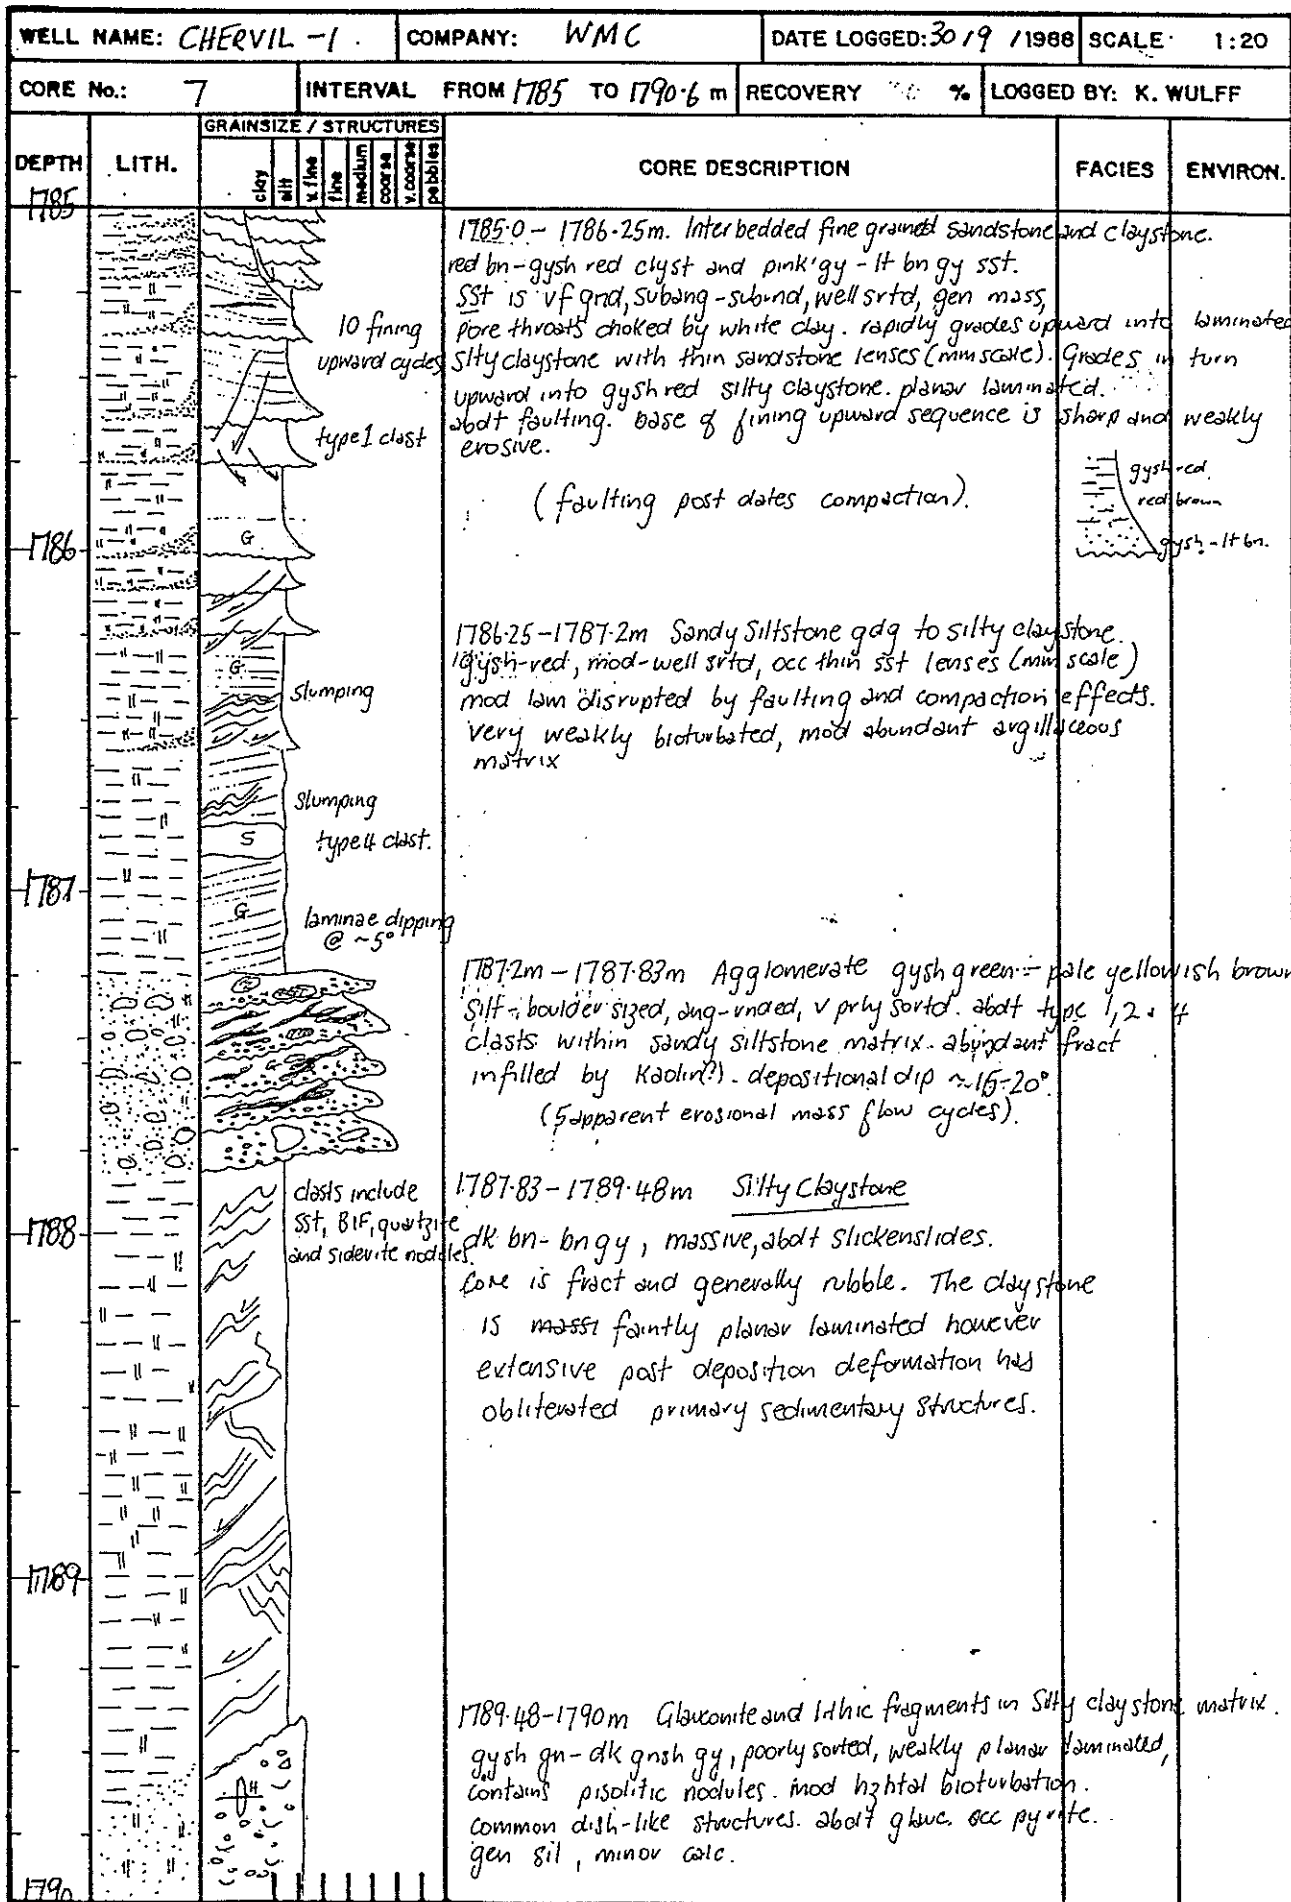 WELL NAME: CHERVIL -1 . COMPANY: WMC DATE LOGGED: 30 / 9 / 1988 SCALE 1:20
CORE No.: 7 INTERVAL FROM 1785 TO 1790.6 m RECOVERY % LOGGED BY: K. WULFF
DEPTH LITH. GRAINSIZE / STRUCTURES CORE DESCRIPTION FACIES ENVIRON.
clay silt v. fine fine medium coarse v. coarse pebbles
1785
1785.0 - 1786.25m. Interbedded fine grained sandstone and claystone.
red bn-gysh red clyst and pink'gy - lt bn gy sst.
SSt is vf gnd, subang-subrnd, well srtd, gen mass,
pore throats choked by white clay. rapidly grades upward into laminated
slty claystone with thin sandstone lenses (mm scale). Grades in turn
upward into gysh red silty claystone. planar laminated.
abdt faulting. base of fining upward sequence is sharp and weakly
erosive.
(faulting post dates compaction).
10 fining
upward cycles
type 1 clast
gysh red.
red brown
gysh - lt bn.
G
1786
1786.25-1787.2m Sandy Siltstone gdg to silty claystone.
gysh-red, mod-well srtd, occ thin sst lenses (mm scale)
mod lam disrupted by faulting and compaction effects.
very weakly bioturbated, mod abundant argillaceous
matrix
G
slumping
slumping
S type 4 clast.
1787
G
laminae dipping
@ ~5°
1787.2m - 1787.83m Agglomerate gysh green - pale yellowish brown
silt - boulder sized, ang-rnded, v prly sortd. abdt type 1, 2 & 4
clasts within sandy siltstone matrix. abundant fract
infilled by Kaolin(?). depositional dip ~15-20°.
(5 apparent erosional mass flow cycles).
clasts include
SSt, BIF, quartzite
and siderite nodules.
1787.83 - 1789.48m Silty Claystone
dk bn- bn gy, massive, abdt slickenslides.
Core is fract and generally rubble. The claystone
is massi faintly planar laminated however
extensive post deposition deformation has
obliterated primary sedimentary structures.
1788
1789
1789.48-1790m Glauconite and lithic fragments in Silty claystone matrix.
gysh gn - dk gnsh gy, poorly sorted, weakly planar laminated,
contains pisolitic nodules. mod hzhtal bioturbation.
common dish-like structures. abdt glauc. occ pyrite.
gen sil, minor calc.
H
1790